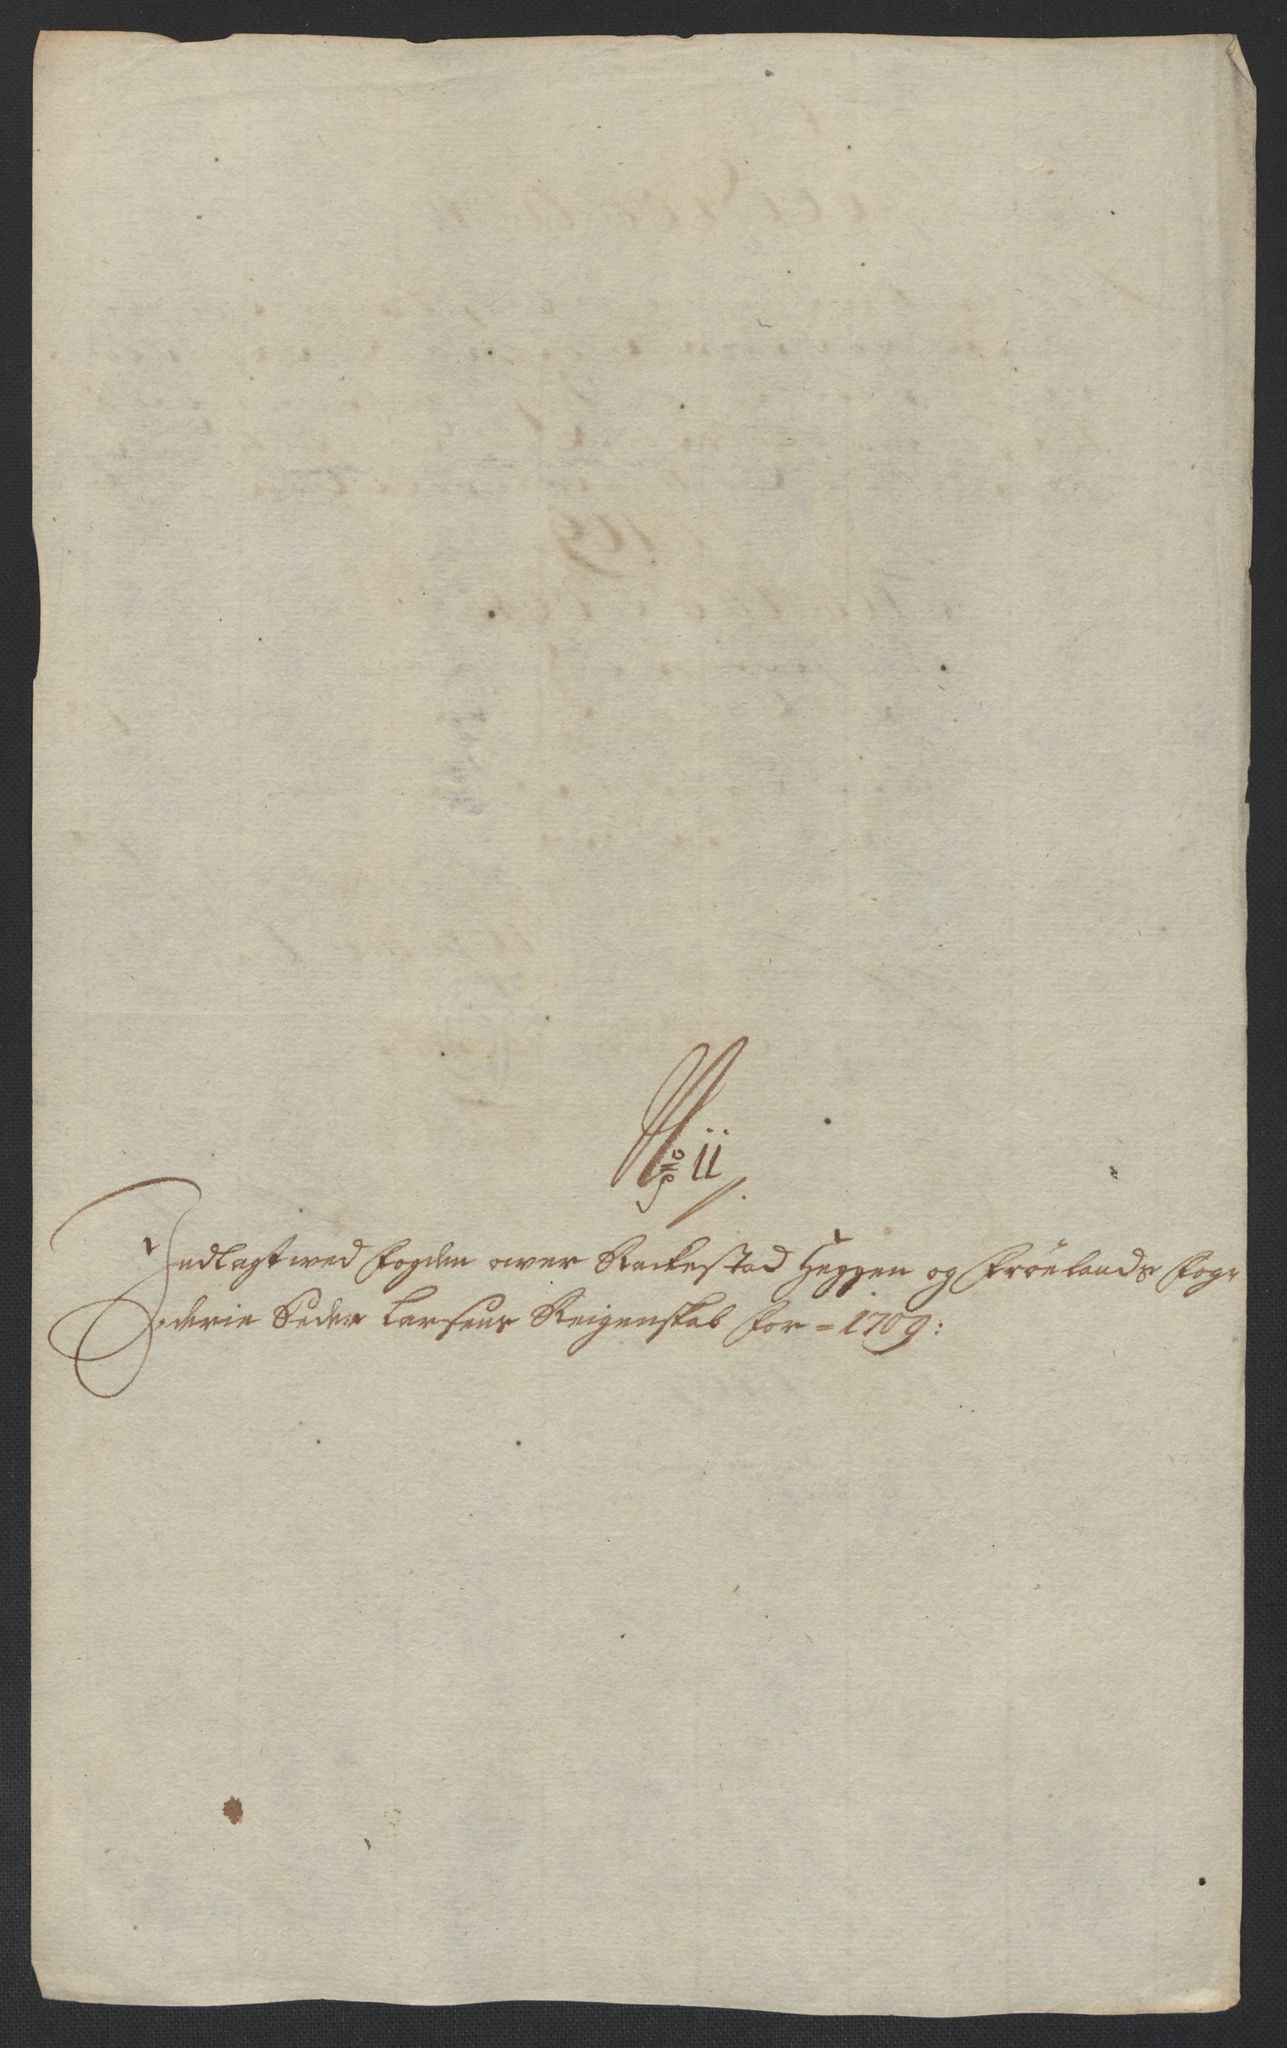 No 11
Indlagt wed fogden ower Rackestad Heggen og Frôelands fog-
derie Peder Larsens Reigenskab for = 1709: